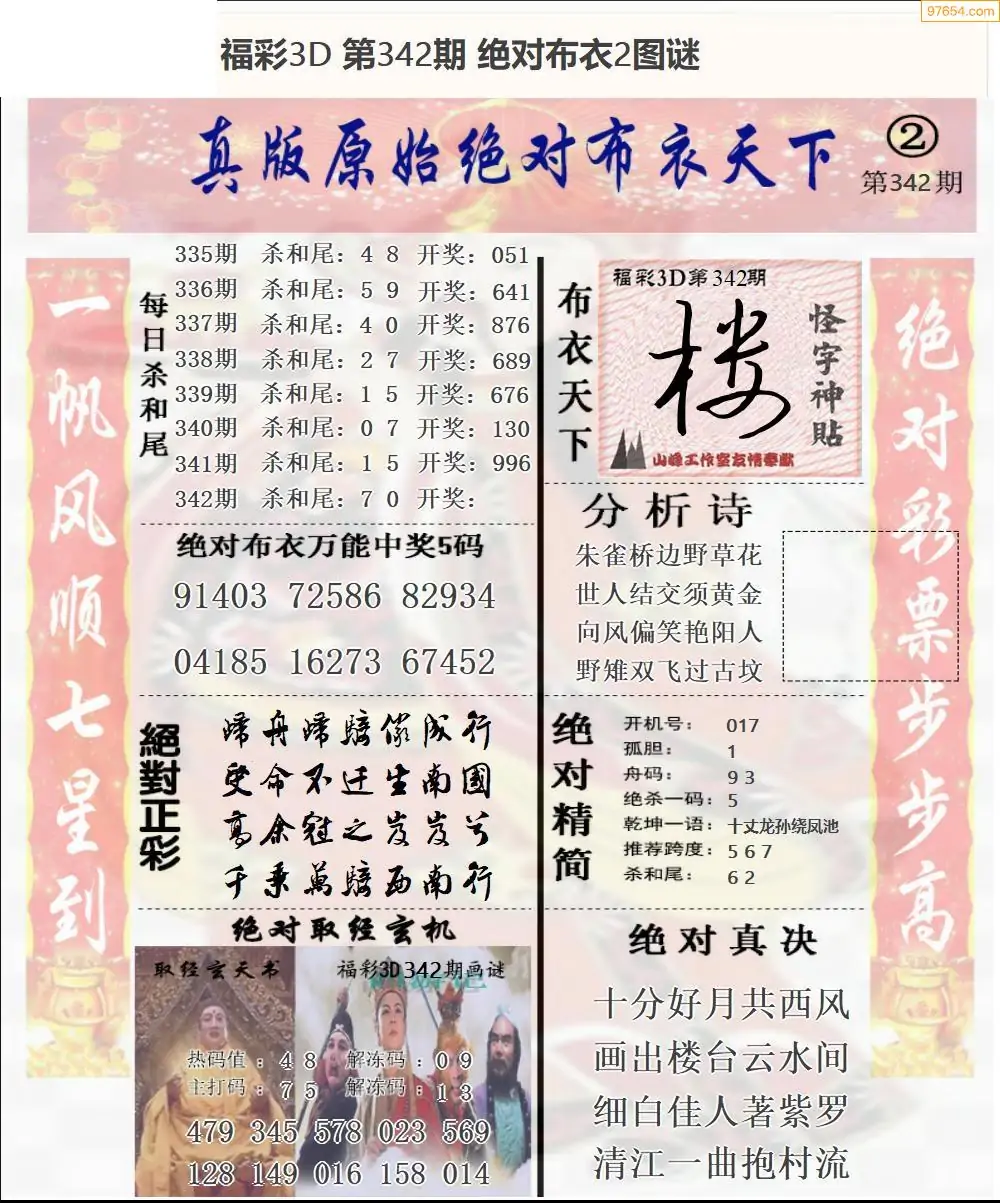 97654.com
福彩3D 第342期 绝对布衣2图谜
真版原始绝对布衣天下
②
第342期
一帆风顺七星到
每日杀和尾
335期 杀和尾：4 8 开奖：051
336期 杀和尾：5 9 开奖：641
337期 杀和尾：4 0 开奖：876
338期 杀和尾：2 7 开奖：689
339期 杀和尾：1 5 开奖：676
340期 杀和尾：0 7 开奖：130
341期 杀和尾：1 5 开奖：996
342期 杀和尾：7 0 开奖：
绝对布衣万能中奖5码
91403 72586 82934
04185 16273 67452
絕對正彩
歸舟歸騎儼成行
受命不迁生南國
高余冠之岌岌兮
千乘萬騎西南行
绝对取经玄机
取经玄天书
福彩3D342期画谜
热码值：4 8 解冻码：0 9
主打码：7 5 解冻码：1 3
479 345 578 023 569
128 149 016 158 014
布衣天下
福彩3D第342期
楼
怪字神贴
山峰工作室友情奉献
分析诗
朱雀桥边野草花
世人结交须黄金
向风偏笑艳阳人
野雉双飞过古坟
绝对精简
开机号：017
孤胆：1
舟码：9 3
绝杀一码：5
乾坤一语：十丈龙孙绕凤池
推荐跨度：5 6 7
杀和尾：6 2
绝对真决
十分好月共西风
画出楼台云水间
细白佳人著紫罗
清江一曲抱村流
绝对彩票步步高